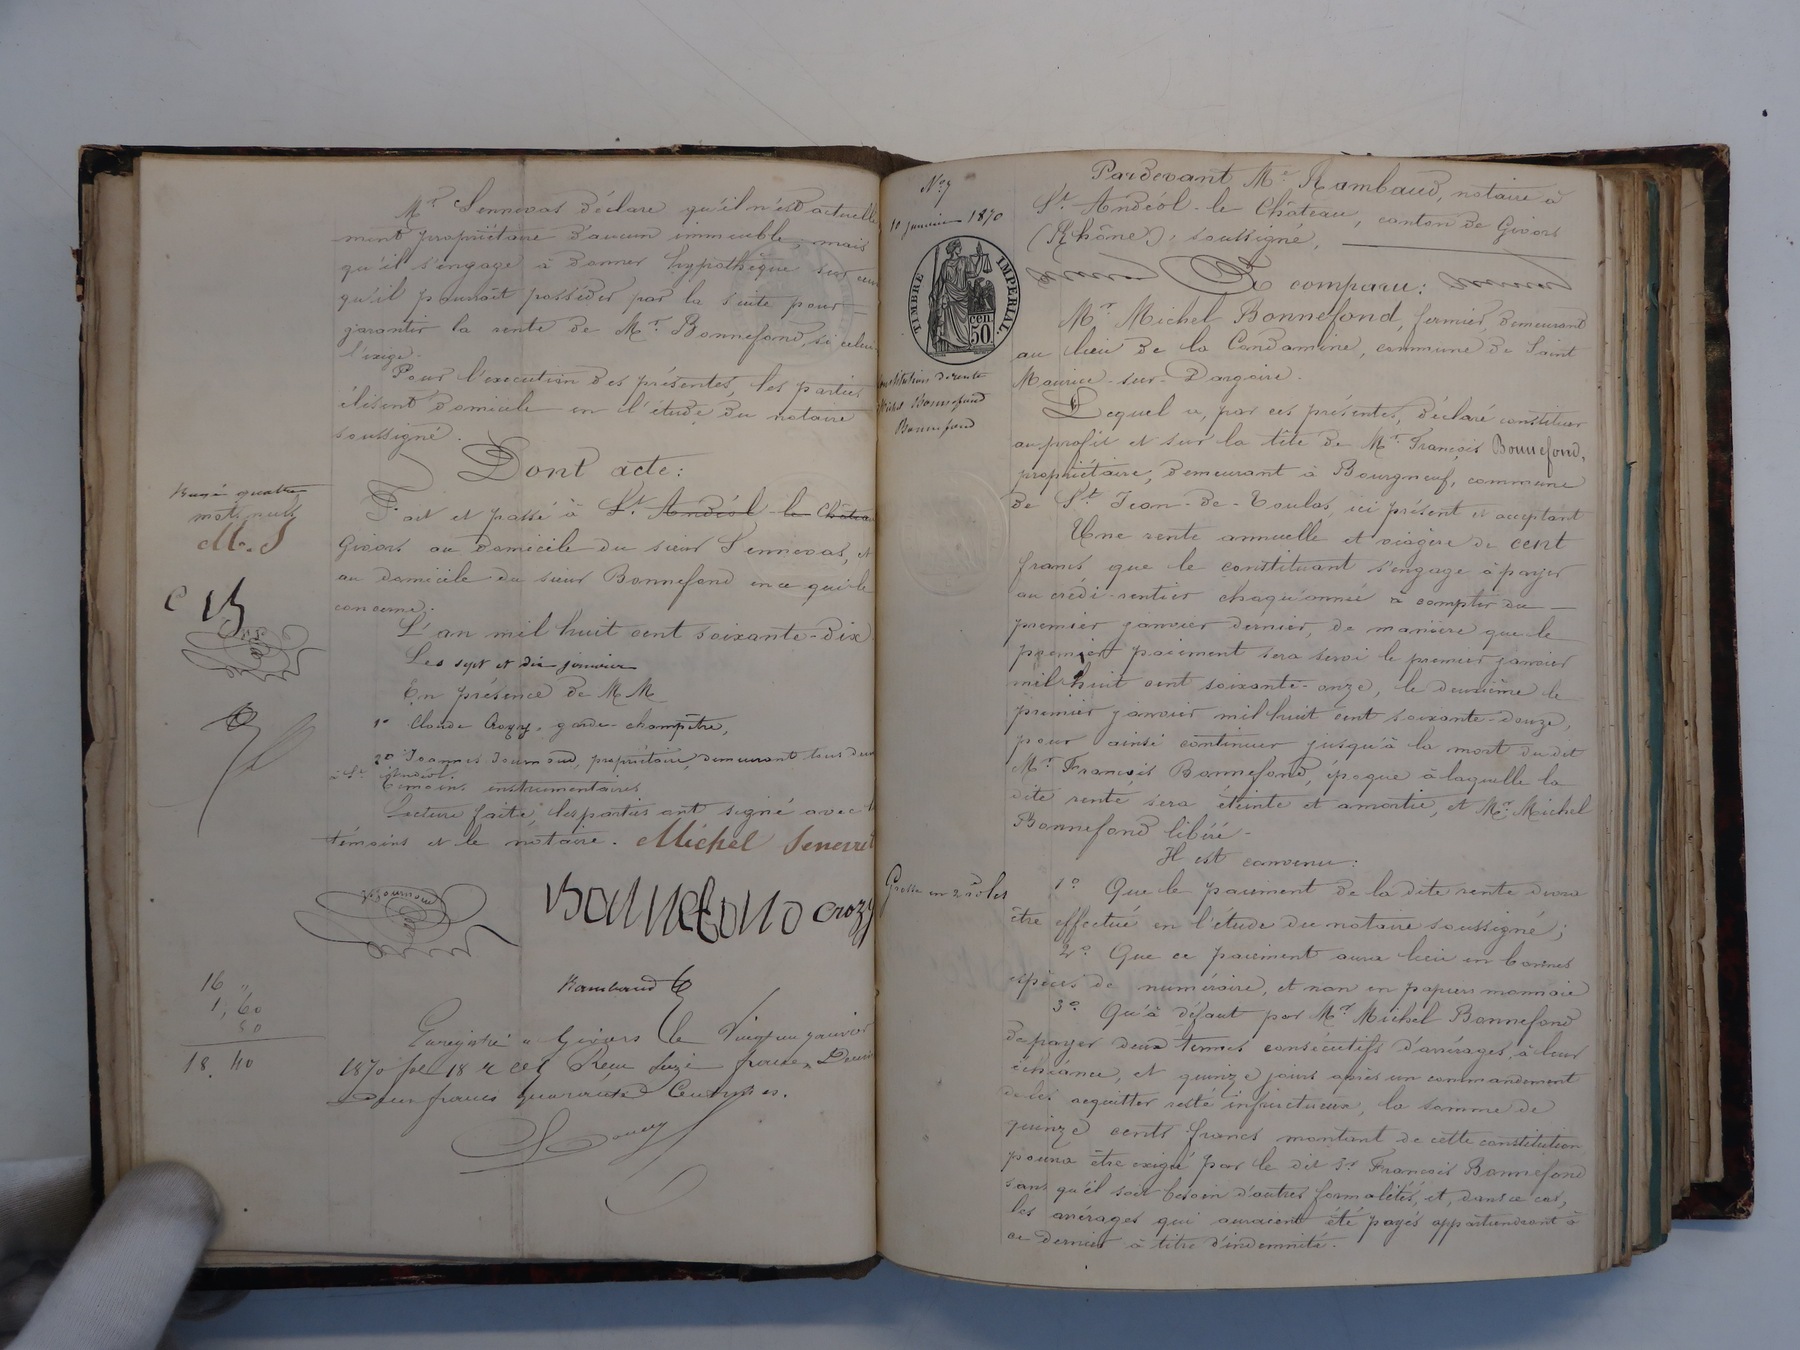 Mr Sennevas déclare qu'il n'est actuelle
ment propriétaire d'aucun immeuble, mais
qu'il s'engage à donner hypothèque sur ceux
qu'il pourrait posséder par la suite pour
garantir la rente de Mr Bonnefond, si celui
l'exige.
Pour l'exécution des présentes, les parties
élisent domicile en l'étude du notaire
soussigné.
Dont acte:
Fait et passé à St Andéol le Château
Givors au domicile du sieur Sennevas, et
au domicile du sieur Bonnefond en ce qui le
concerne.
L'an mil huit cent soixante-dix
Les sept et dix janvier
En présence de M M
1° Claude Crozy, garde-champêtre,
2° Joannès Journoud, propriétaire, demeurant tous deux
à St Andéol.
témoins instrumentaires
Lecture faite, les parties ont signé avec
témoins et le notaire. Michel
Rayé quatre
mots nuls
M. S
Journoud
Bonnefond Crozy
Rambaud
16 "
1, 60
80
18. 40
Enregistré à Givors le Vingt un janvier
1870 fol 18 Reçu Seize francs, Décime
un franc quarante Centimes.
No 7
10 janvier 1870
TIMBRE IMPERIAL.
50 cen
Constitution de rente
Michel Bonnefond
Bonnefond
Grosse en 2 rôles
Pardevant Me Rambaud, notaire à
St Andéol-le Château, canton de Givors
(Rhône), soussigné,
A comparu:
Mr Michel Bonnefond, fermier, demeurant
au lieu de la Condamine, commune de Saint
Maurice-sur-Dargoire.
Lequel a, par ces présentes, déclaré constituer
au profit et sur la tête de Mr François Bonnefond,
propriétaire, demeurant à Bourgneuf, commune
de St Jean-de-Toulas, ici présent et acceptant
Une rente annuelle et viagère de cent
francs que le constituant s'engage à payer
au crédi-rentier chaqu'année à compter du
premier janvier dernier, de manière que le
premier paiement sera servi le premier janvier
mil huit cent soixante-onze, le deuxième le
premier janvier mil huit cent soixante-douze,
pour ainsi continuer jusqu'à la mort du dit
Mr François Bonnefond, époque à laquelle la
dite rente sera éteinte et amortie, et Mr Michel
Bonnefond libéré.
Il est convenu:
1° Que le paiement de la dite rente devra
être effectué en l'étude du notaire soussigné;
2° Que ce paiement aura lieu en bonnes
espèces de numéraire, et non en papiers monnaie
3° Qu'à défaut par Mr Michel Bonnefond
de payer deux termes consécutifs d'arrérages, à leur
échéance, et quinze jours après un commandement
de les acquitter resté infructueux, la somme de
quinze cents francs montant de cette constitution
pourra être exigé par le dit Sr François Bonnefond
sans qu'il soit besoin d'autres formalités, et, dans ce cas,
les arrérages qui auraient été payés appartiendront à
ce dernier à titre d'indemnité.